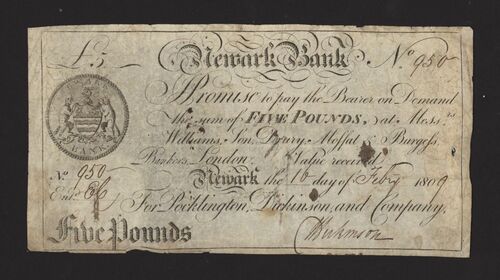 £5 Newark Bank No 950
I Promise to pay the Bearer on Demand
the sum of FIVE POUNDS, at Messrs
Williams, Son, Drury, Moffat & Burgess,
BANK
Bankers London. Value received
No 950 Newark the 10 day of Feby 1809
Entd
For Pocklington, Dickinson, and Company.
Five Pounds
Dickinson